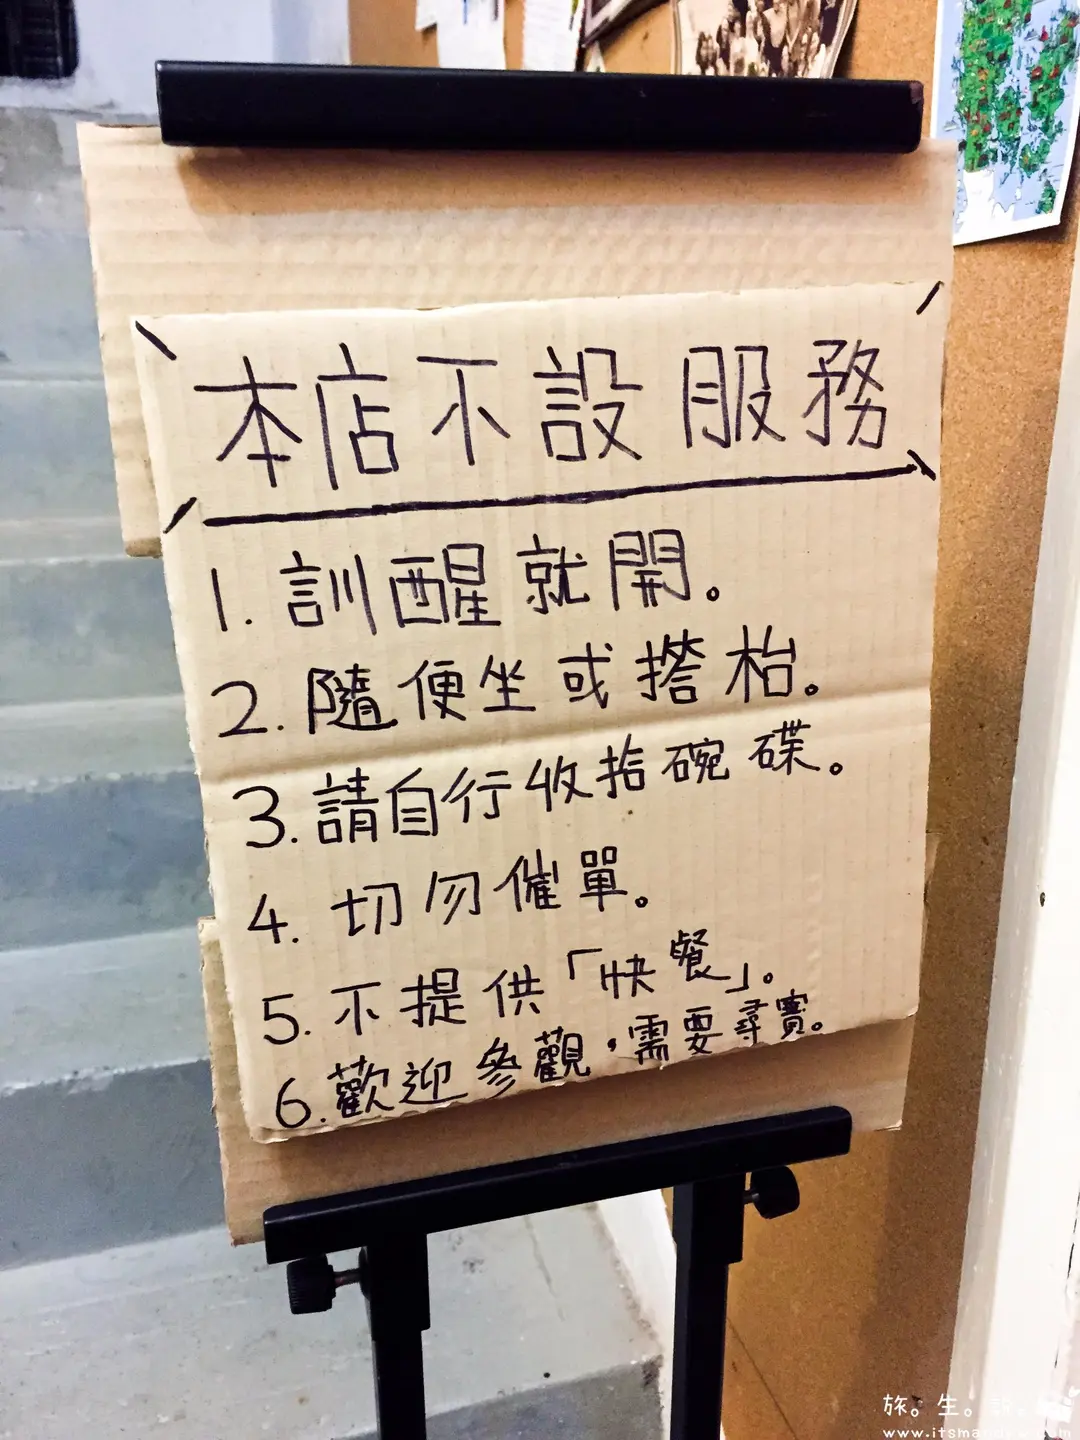 本店不設服務
1. 訓醒就開。
2. 隨便坐或撘枱。
3. 請自行收拾碗碟。
4. 切勿催單。
5. 不提供「快餐」。
6. 歡迎參觀，需要尋寶。
旅。生。
www.itsman